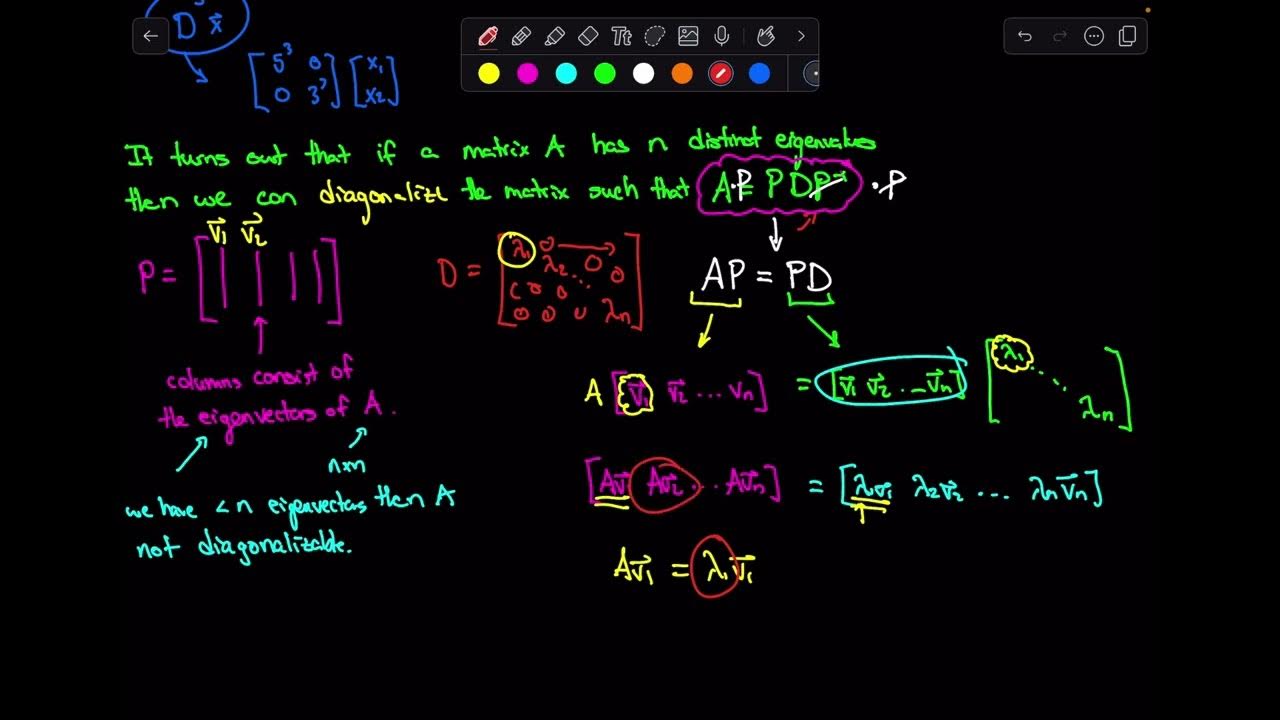 D³x⃗
[5³ 0
0 3³] [x₁
x₂]
It turns out that if a matrix A has n distinct eigenvalues
then we can diagonalize the matrix such that A·P = PDP⁻¹ ·P
v⃗₁ v⃗₂
P = [ | | | | ]
D = [λ₁ 0 0
λ₂ 0 0
0 0 0 ⋱
0 0 0 λn]
AP = PD
columns consist of
the eigenvectors of A.
n×n
we have < n eigenvectors then A
not diagonalizable.
A [v⃗₁ v⃗₂ ... vn] = [v⃗₁ v⃗₂ ... v⃗n] [λ₁ ⋱ λn]
[Av⃗ Av⃗₂ ... Av⃗n] = [λ₁v⃗₁ λ₂v⃗₂ ... λnv⃗n]
Av⃗₁ = λ₁v⃗₁
Tt